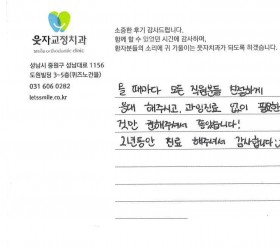 웃자교정치과
smile orthodontic clinic
성남시 중원구 성남대로 1156
도원빌딩 3~5층(퀴즈노건물)
031 606 0282
letssmile.co.kr
소중한 후기 감사드립니다.
함께 할 수 있었던 시간에 감사하며,
환자분들의 소리에 귀 기울이는 웃자치과가 되도록 하겠습니다.
올 때마다 모든 직원분들 친절하게
응대 해주시고, 과잉진료 없이 필요한
것만 권해주셔서 좋았습니다!
2년동안 진료 해주셔서 감사합니다